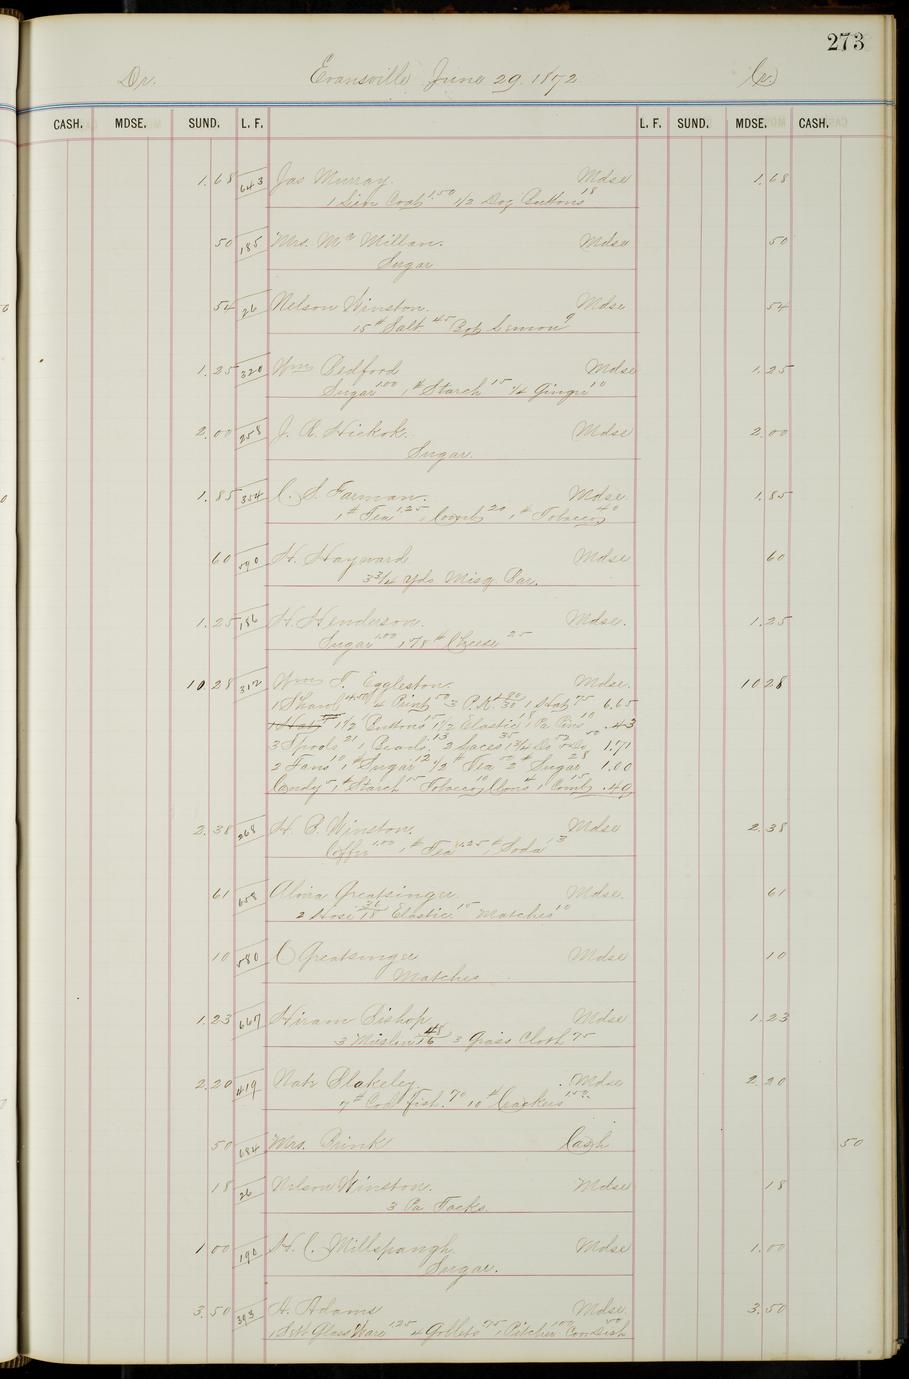 273
Dr. Evansville June 29. 1872 Cr.
CASH. MDSE. SUND. L. F. L. F. SUND. MDSE. CASH.
1.68 643 Jas Murray. Mdse 1.68
1 Lin Coat 1.50 1/2 Doz Buttons 18
50 185 Mrs. Mc Millan. Mdse 50
Sugar
54 26 Nelson Winston. Mdse 54
15 # Salt 45 Bot Lemon 9
1.25 320 Wm Bedford Mdse 1.25
Sugar 1.00 1 # Starch 15 1/4 Ginger 10
2.00 258 J. A. Hickok. Mdse 2.00
Sugar.
1.85 354 C. S. Farman. Mdse 1.85
1 # Tea 1.25 1 Comb 20 1 # Tobacco 40
60 590 H. Hayward Mdse 60
3 3/4 Yds Misq. Bar.
1.25 186 H. Henderson. Mdse. 1.25
Sugar 1.00 1 78 # Cheese 25
10.28 312 Wm T. Eggleston. Mdse. 10 28
1 Shawl 4.50 4 Print 50 3 P.K. 90/30 1 Hat 75 6.65
1 Hat 1 1/2 Buttons 15 1 1/2 Elastic 18 1 Pa Pins 10 .43
3 Spools 21 1 Braid 13 2 Laces 35 1 3/4 Do 52 Do 50 1.71
2 Fans 10 1 # Sugar 12 1/2 # Tea 50 2 # Sugar 28 1.00
Candy 5 1 # Starch 15 Tobacco 10 Cloves 4 1 Comb 15 .49
2.38 268 H. B. Winston. Mdse 2.38
Coffee 1.00 1 # Tea 1.25 1 # Soda 13
61 658 Alvira Greatsinger. Mdse. 61
2 Hose 36/18 Elastic 15 Matches 10
10 580 C Greatsinger Mdse 10
Matches
1.23 667 Hiram Bishop Mdse 1.23
3 Muslin 48/16 3 Grass Cloth 75
2.20 419 Nate Blakeley. Mdse 2.20
7 # Cod Fish. 70 10 # Crackers 1.50
50 684 Mrs. Brink Cash 50
18 26 Nelson Winston. Mdse 18
3 Pa Tacks.
1 00 190 H. C. Millspaugh Mdse 1.00
Sugar.
3.50 393 A. Adams Mdse. 3.50
1 Sett Glass Ware 1.25 4 Goblets 75 1 Pitcher 1.00 Cov Dish 50